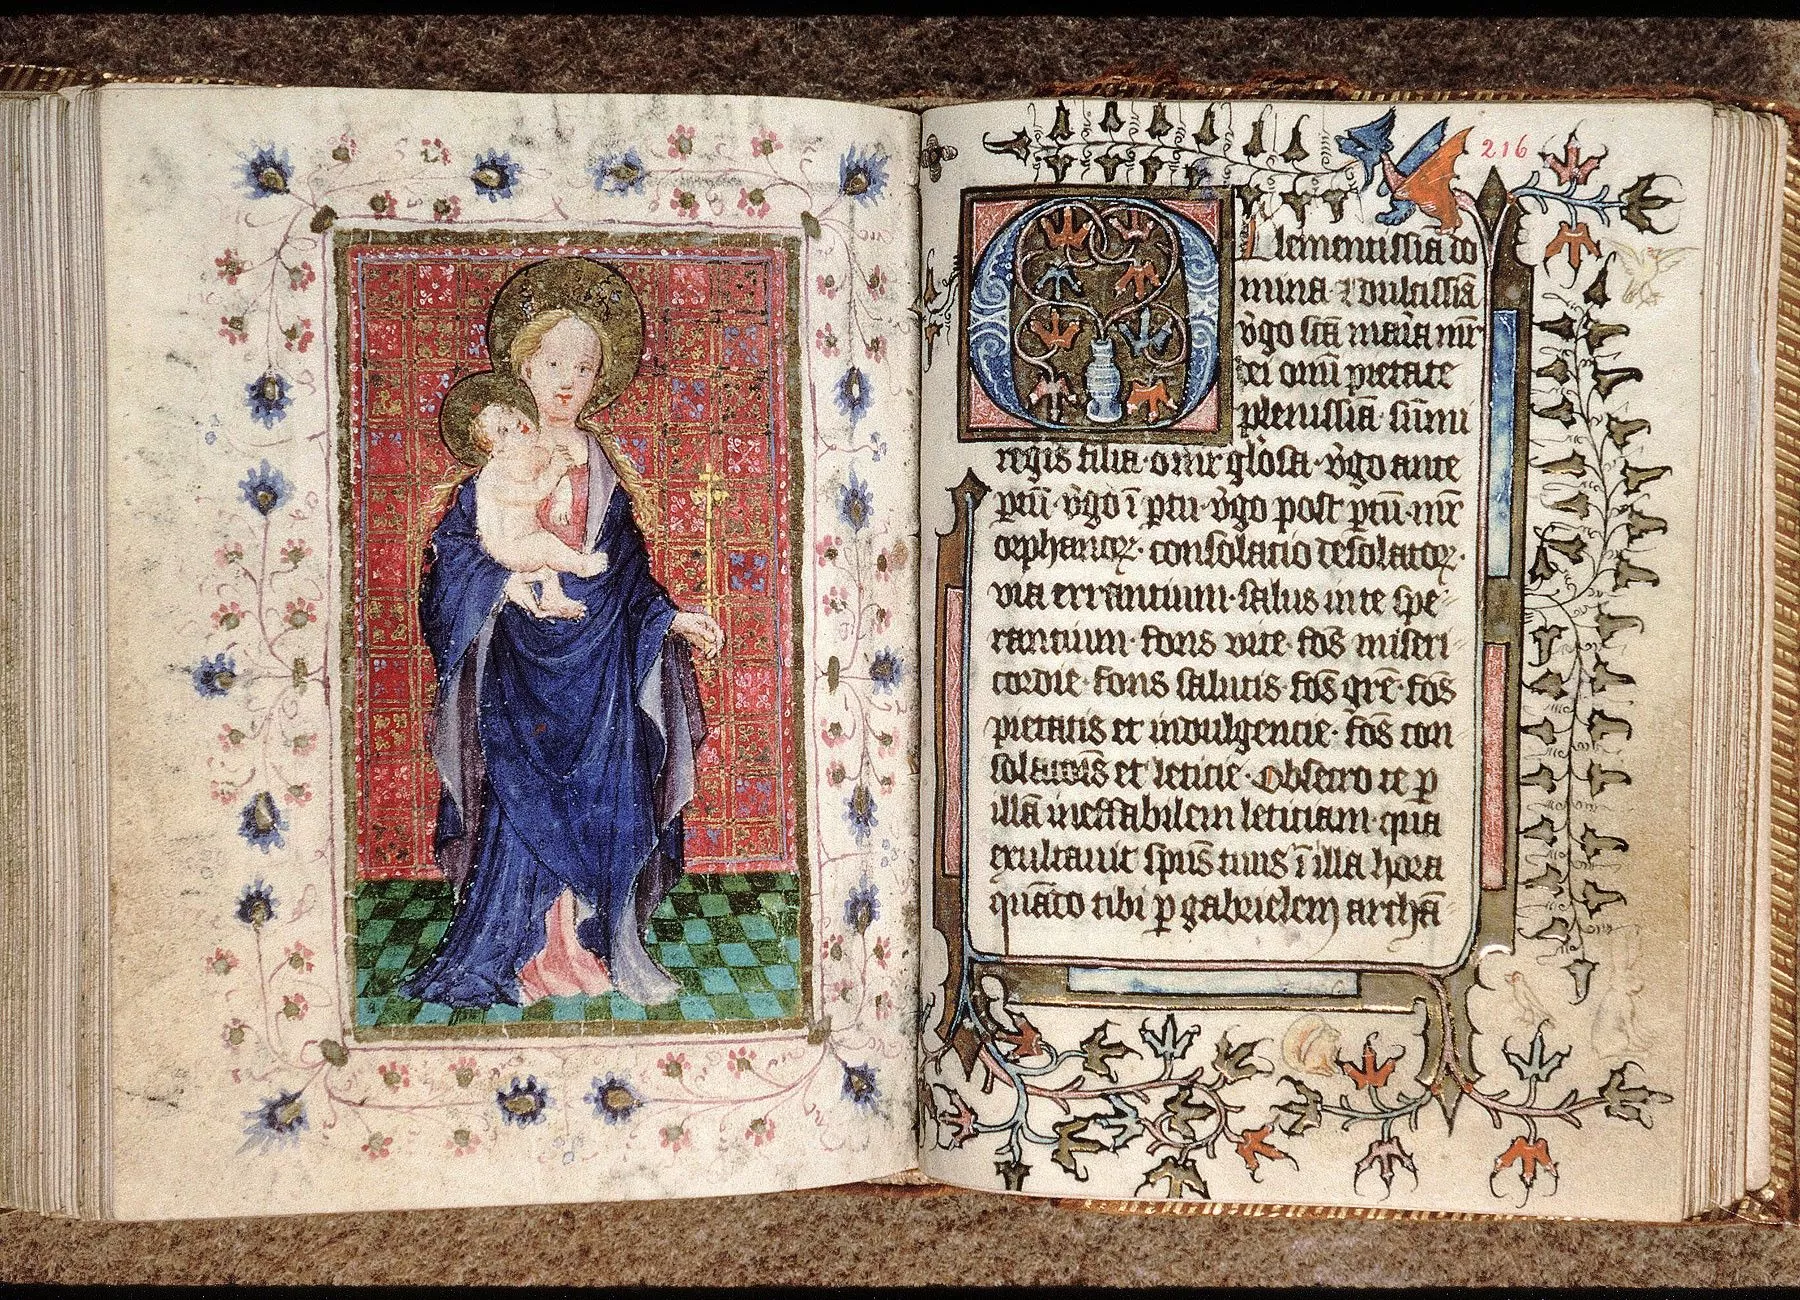 216
O Clementissīa do
mina ⁊ dulcissīa
v̄go scā maria mr̄
dei om̄i pietate
plenissīa · sūmi
regis filia · mr̄ gl̓osa · v̄go ante
ꝑtū · v̄go ī ꝑtu · v̄go post ꝑtū · mr̄
orphanoꝝ · consolatio desolatoꝝ ·
via errantium · salus in te spe
rantium · fons vite · fōs miseri
cordie · fons salutis · fōs gr̄e · fōs
pietatis et indulgencie · fōs con
solac̄ois et leticie · Obsecro te ꝑ
illā ineffabilem leticiam · qua
exultauit sp̄us tuus ī illa hora
quādo tibi ꝑ gabrielem archā